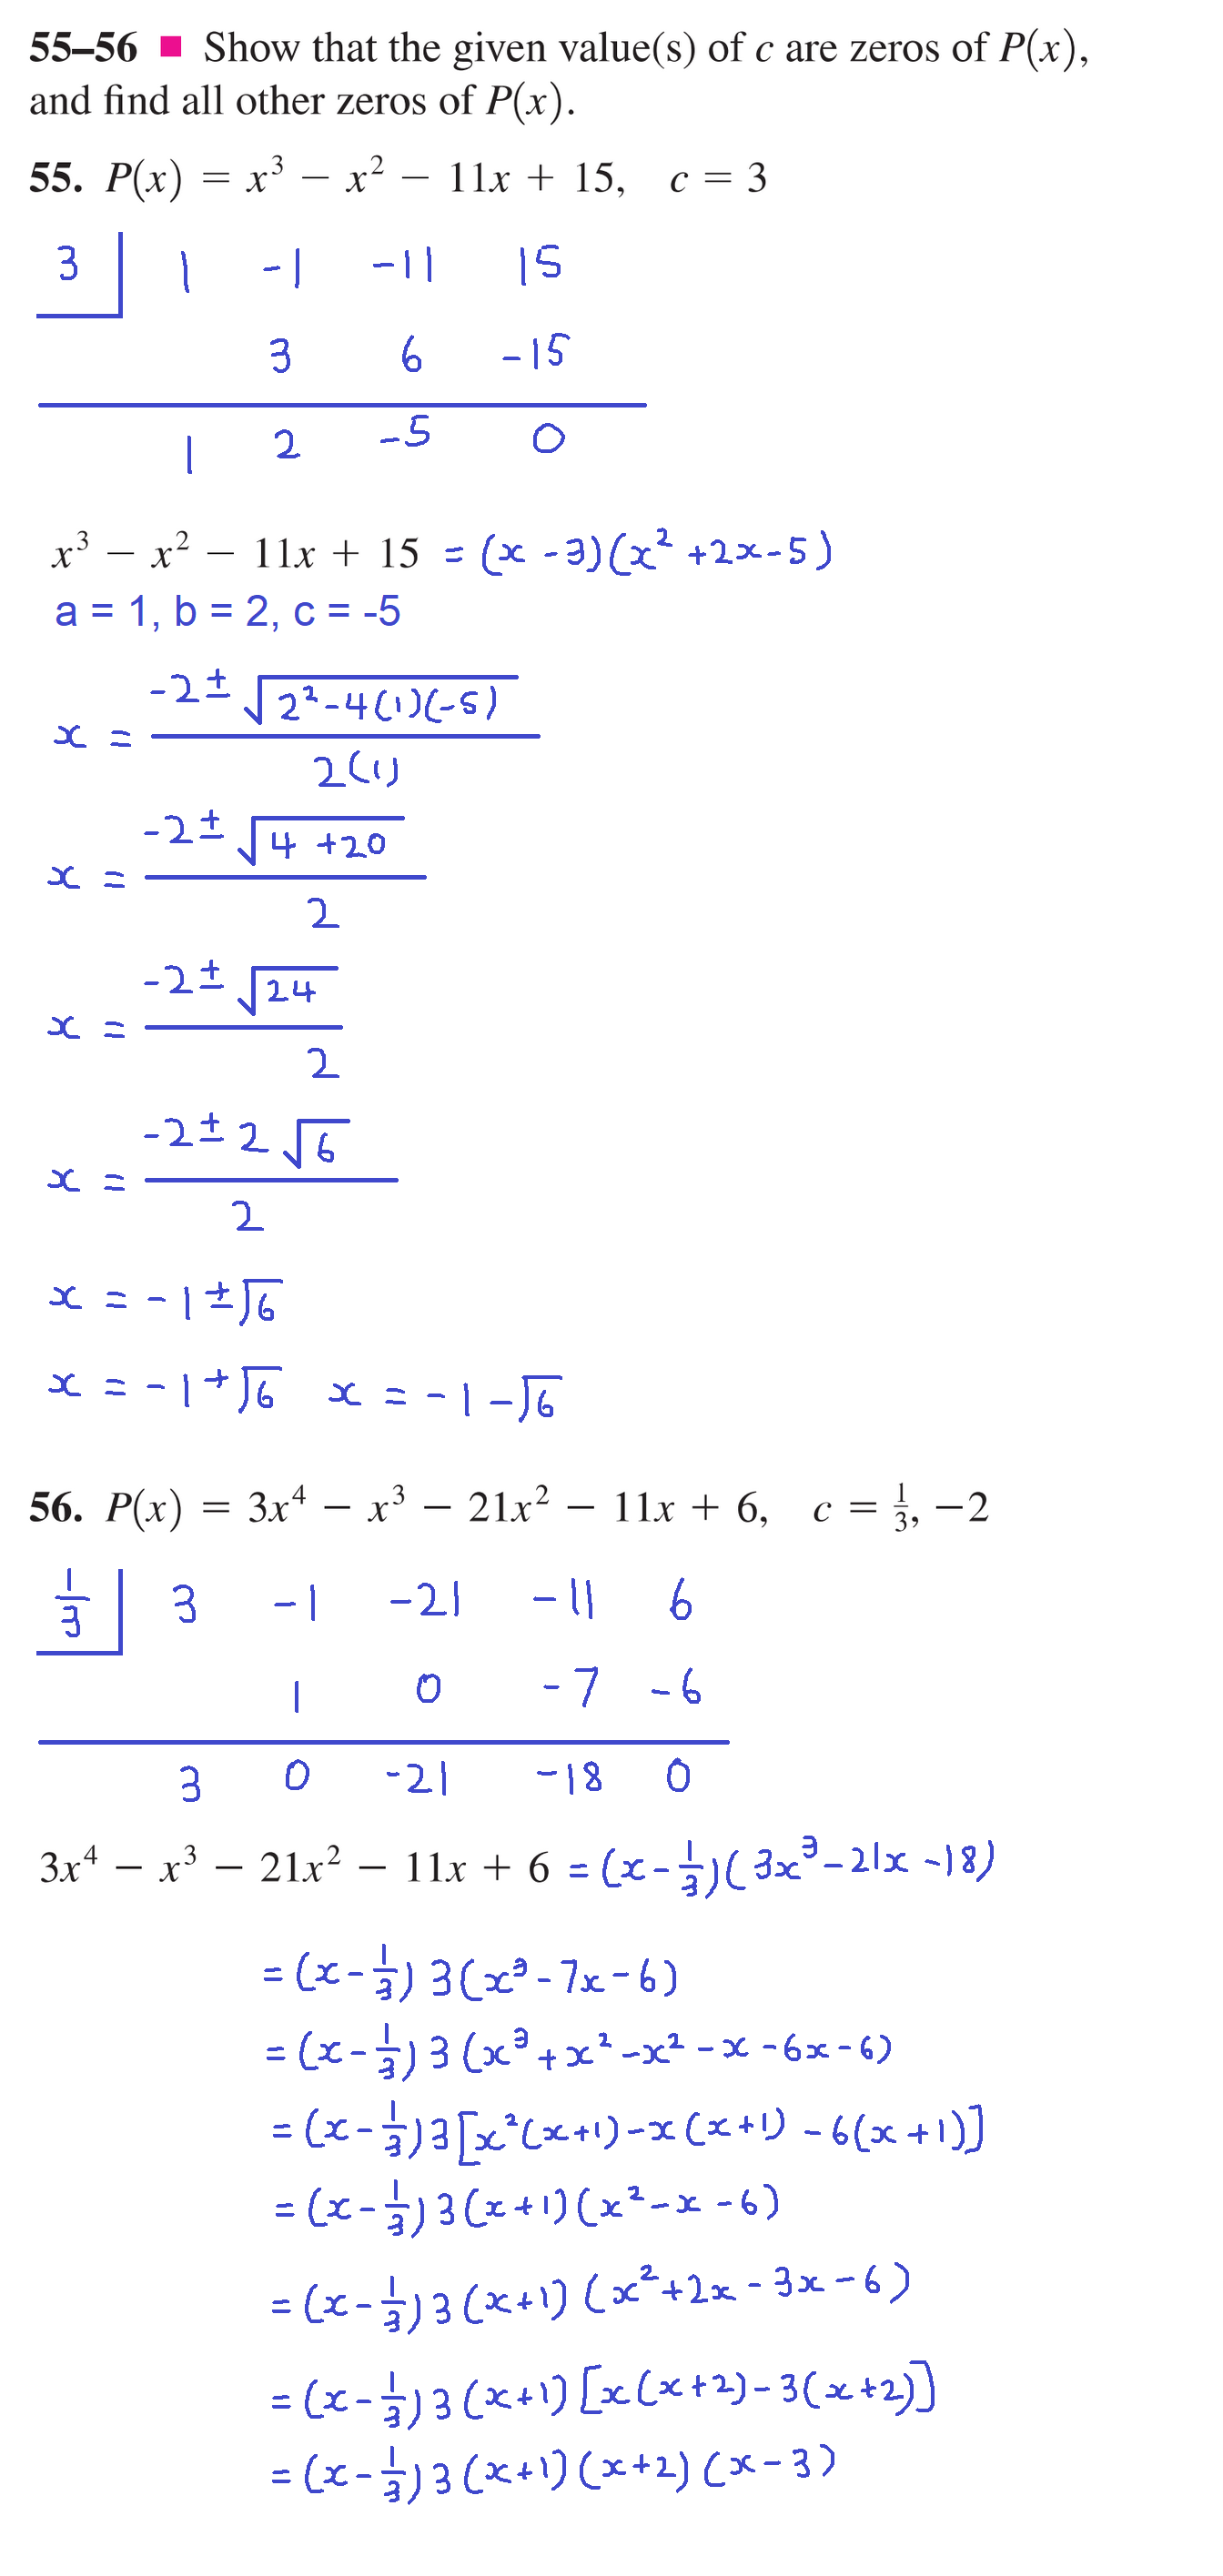 55–56 ■ Show that the given value(s) of c are zeros of P(x),
and find all other zeros of P(x).
55. P(x) = x³ − x² − 11x + 15, c = 3
3 | 1 -1 -11 15
3 6 -15
1 2 -5 0
x³ − x² − 11x + 15 = (x - 3)(x² + 2x - 5)
a = 1, b = 2, c = -5
x = (-2 ± √(2² - 4(1)(-5))) / 2(1)
x = (-2 ± √(4 + 20)) / 2
x = (-2 ± √24) / 2
x = (-2 ± 2√6) / 2
x = -1 ± √6
x = -1 + √6 x = -1 - √6
56. P(x) = 3x⁴ − x³ − 21x² − 11x + 6, c = 1/3, −2
1/3 | 3 -1 -21 -11 6
1 0 -7 -6
3 0 -21 -18 0
3x⁴ − x³ − 21x² − 11x + 6 = (x - 1/3)(3x³ - 21x - 18)
= (x - 1/3) 3(x³ - 7x - 6)
= (x - 1/3) 3(x³ + x² - x² - x - 6x - 6)
= (x - 1/3) 3[x²(x+1) - x(x+1) - 6(x+1)]
= (x - 1/3) 3(x+1)(x² - x - 6)
= (x - 1/3) 3(x+1)(x² + 2x - 3x - 6)
= (x - 1/3) 3(x+1)[x(x+2) - 3(x+2)]
= (x - 1/3) 3(x+1)(x+2)(x - 3)